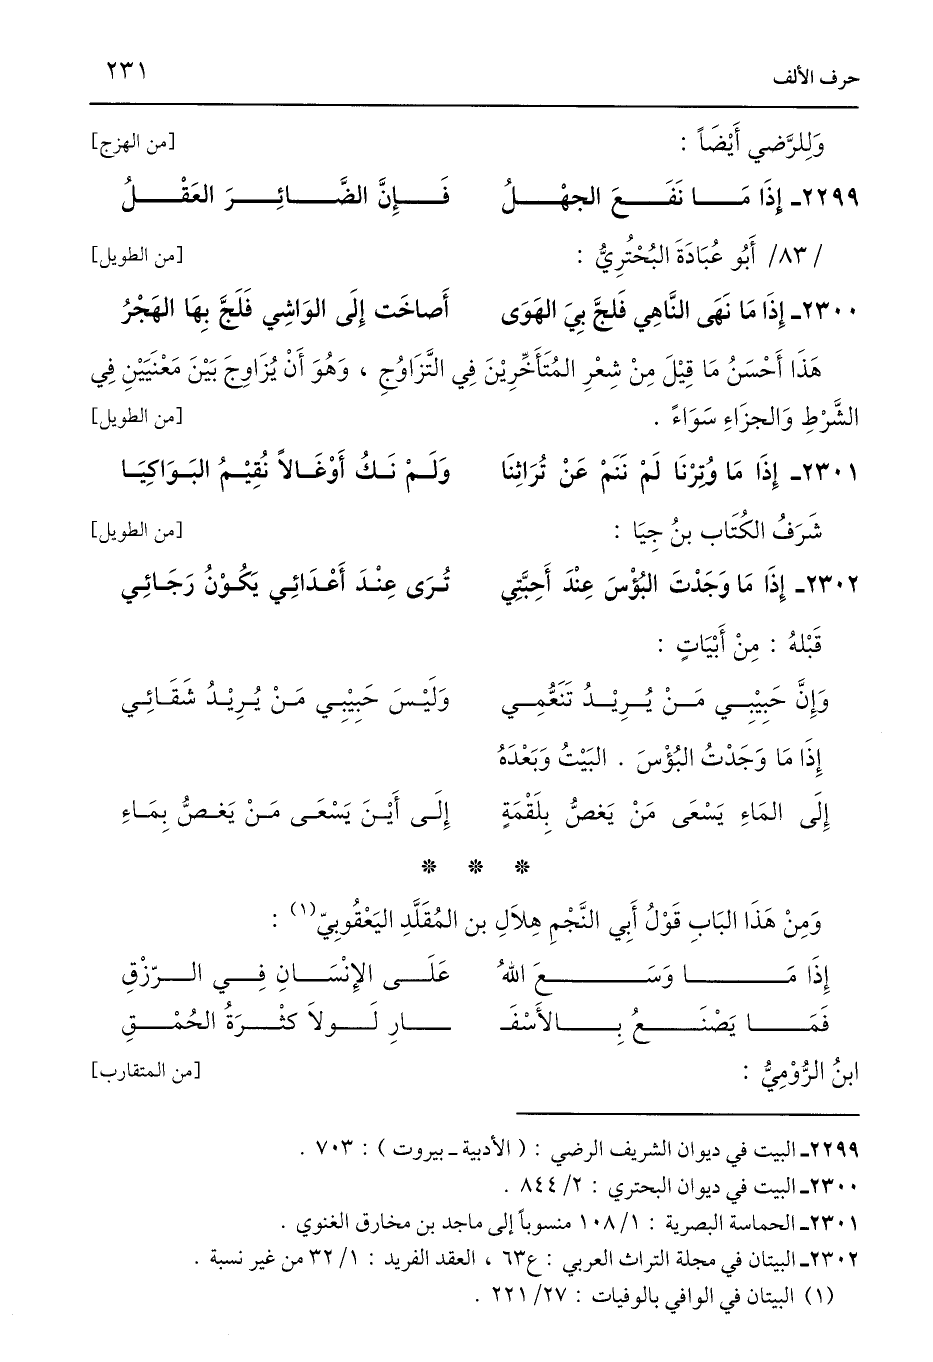 حرف الألف ٢٣١
وَلِلرَّضي أَيْضَاً : [من الهزج]
٢٢٩٩ـ إِذَا مَا نَفَعَ الجهْلُ فَإِنَّ الضَّائِرَ العَقْلُ
/٨٣/ أَبُو عُبَادَةَ البُحْتُرِيُّ : [من الطويل]
٢٣٠٠ـ إِذَا مَا نَهَى النَّاهِي فَلجَّ بِيَ الهَوَى أَصاخَت إِلَى الوَاشِي فَلَجَّ بِهَا الهَجْرُ
هَذَا أَحْسَنُ مَا قِيْلَ مِنْ شِعْرِ المُتَأَخِّرِيْنَ فِي التَّزَاوُجِ ، وَهُوَ أَنْ يُزَاوِجَ بَيْنَ مَعْنَيَيْنِ فِي
الشَّرْطِ وَالجزَاءِ سَوَاءً . [من الطويل]
٢٣٠١ـ إِذَا مَا وُتِرْنَا لَمْ نَنَمْ عَنْ تُرَاثِنَا وَلَمْ نَكُ أَوْغَالاً نُقِيْمُ البَوَاكِيَا
شَرَفُ الكُتَابِ بنُ جِيَا : [من الطويل]
٢٣٠٢ـ إِذَا مَا وَجَدْتَ البُؤْسَ عِنْدَ أَحِبَّتِي تُرَى عِنْدَ أَعْدَائِي يَكُوْنُ رَجَائِي
قَبْلهُ : مِنْ أَبْيَاتٍ :
وَإِنَّ حَبِيْبِي مَنْ يُرِيْدُ تَنَعُّمِي وَلَيْسَ حَبِيْبِي مَنْ يُرِيْدُ شَقَائِي
إِذَا مَا وَجَدْتُ البُؤْسَ . البَيْتُ وَبَعْدَهُ
إِلَى المَاءِ يَسْعَى مَنْ يَغصُّ بِلَقْمَةٍ إِلَى أَيْنَ يَسْعَى مَنْ يَغصُّ بِمَاءِ
❊ ❊ ❊
وَمِنْ هَذَا البَابِ قَوْلُ أَبِي النَّجْمِ هِلاَلِ بن المُقَلَّدِ اليَعْقُوبِيّ(١) :
إِذَا مَا وَسَعَ اللهُ عَلَى الإِنْسَانِ فِي الرّزْقِ
فَمَا يَصْنَعُ بِالأَسْفَـ ـارِ لَولاَ كثْرَةُ الحُمْقِ
ابنُ الرُّوْمِيُّ : [من المتقارب]
٢٢٩٩ـ البيت في ديوان الشريف الرضي : ( الأدبية ـ بيروت ) : ٧٠٣ .
٢٣٠٠ـ البيت في ديوان البحتري : ٢/ ٨٤٤ .
٢٣٠١ـ الحماسة البصرية : ١/ ١٠٨ منسوباً إلى ماجد بن مخارق الغنوي .
٢٣٠٢ـ البيتان في مجلة التراث العربي : ع٦٣ ، العقد الفريد : ١/ ٣٢ من غير نسبة .
(١) البيتان في الوافي بالوفيات : ٢٧/ ٢٢١ .